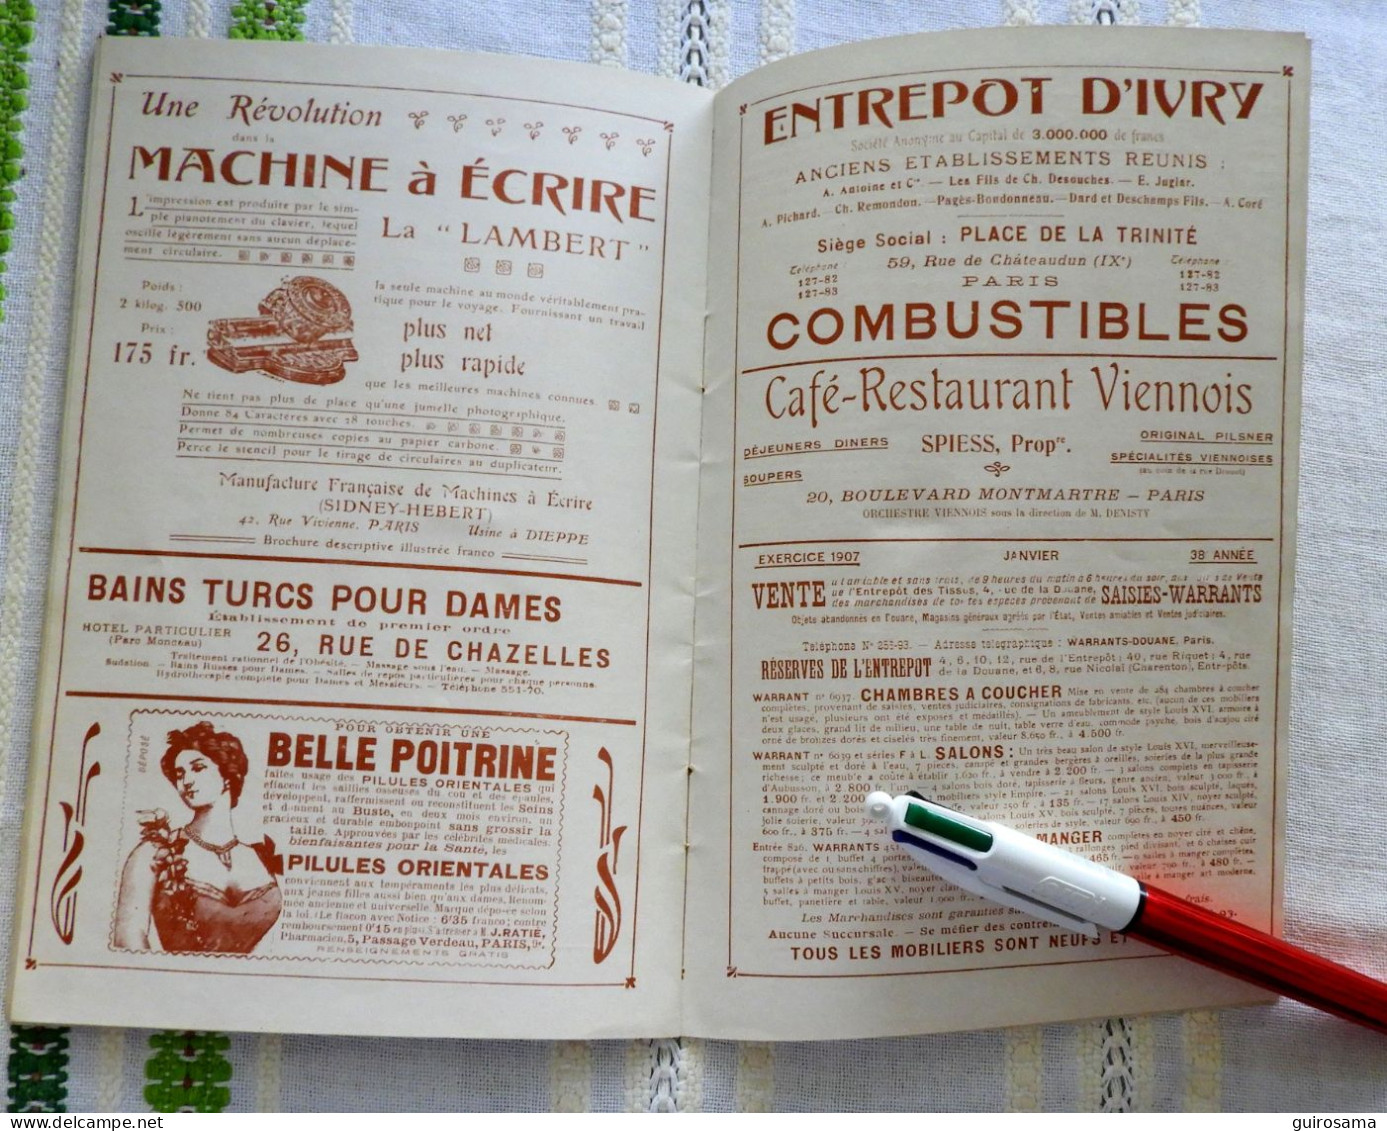 Une Révolution
dans la
MACHINE à ÉCRIRE
L'impression est produite par le sim-
ple pianotement du clavier, lequel
oscille légèrement sans aucun déplace-
ment circulaire.
La "LAMBERT"
Poids :
2 kilog. 500
Prix :
175 fr.
la seule machine au monde véritablement pra-
tique pour le voyage. Fournissant un travail
plus net
plus rapide
que les meilleures machines connues.
Ne tient pas plus de place qu'une jumelle photographique.
Donne 84 Caractères avec 28 touches.
Permet de nombreuses copies au papier carbone.
Perce le stencil pour le tirage de circulaires au duplicateur.
Manufacture Française de Machines à Écrire
(SIDNEY-HEBERT)
42, Rue Vivienne, PARIS Usine à DIEPPE
Brochure descriptive illustrée franco
BAINS TURCS POUR DAMES
Établissement de premier ordre
HOTEL PARTICULIER
(Parc Monceau)
26, RUE DE CHAZELLES
Traitement rationnel de l'Obésité. — Massage sous l'eau. — Massage.
Sudation. — Bains Russes pour Dames. — Salles de repos particulières pour chaque personne.
Hydrothérapie complète pour Dames et Messieurs. — Téléphone 551-70.
DÉPOSÉ
POUR OBTENIR UNE
BELLE POITRINE
faites usage des PILULES ORIENTALES qui
effacent les saillies osseuses du cou et des épaules,
développent, raffermissent ou reconstituent les Seins
et donnent au Buste, en deux mois environ, un
gracieux et durable embonpoint sans grossir la
taille. Approuvées par les célébrités médicales.
bienfaisantes pour la Santé, les
PILULES ORIENTALES
conviennent aux tempéraments les plus délicats,
aux jeunes filles aussi bien qu'aux dames. Renom-
mée ancienne et universelle. Marque déposée selon
la loi. (Le flacon avec Notice : 6'35 franco; contre
remboursement 0'15 en plus). S'adresser à M. J. RATIE,
Pharmacien, 5, Passage Verdeau, PARIS, 9e.
RENSEIGNEMENTS GRATIS
ENTREPOT D'IVRY
Société Anonyme au Capital de 3.000.000 de francs
ANCIENS ETABLISSEMENTS REUNIS :
A. Antoine et Cie. — Les Fils de Ch. Desouches. — E. Juglar.
A. Pichard. — Ch. Remondon. — Pagès-Boudonneau. — Dard et Deschamps Fils. — A. Coré
Siège Social : PLACE DE LA TRINITÉ
59, Rue de Châteaudun (IXe)
PARIS
Téléphone :
127-82
127-83
Téléphone :
127-82
127-83
COMBUSTIBLES
Café-Restaurant Viennois
DÉJEUNERS DINERS
SOUPERS
SPIESS, Propre.
ORIGINAL PILSNER
SPÉCIALITÉS VIENNOISES
(au coin de la rue Drouot)
20, BOULEVARD MONTMARTRE — PARIS
ORCHESTRE VIENNOIS sous la direction de M. DENISTY
EXERCICE 1907 JANVIER 38e ANNÉE
VENTE à l'amiable et sans frais, de 9 heures du matin à 6 heures du soir, aux de Vente
de l'Entrepôt des Tissus, 4, rue de la Douane,
des marchandises de toutes espèces provenant de SAISIES-WARRANTS
Objets abandonnés en Douane, Magasins généraux agréés par l'État, Ventes amiables et Ventes judiciaires.
Téléphone No 255-93. — Adresse télégraphique : WARRANTS-DOUANE, Paris.
RÉSERVES DE L'ENTREPOT 4, 6, 10, 12, rue de l'Entrepôt ; 40, rue Riquet ; 4, rue
de la Douane, et 6, 8, rue Nicolaï (Charenton), Entrepôts.
WARRANT no 6937. CHAMBRES A COUCHER Mise en vente de 284 chambres à coucher
complètes, provenant de saisies, ventes judiciaires, consignations de fabricants, etc. (aucun de ces mobiliers
n'est usagé, plusieurs ont été exposés et médaillés). — Un ameublement de style Louis XVI, armoire à
deux glaces, grand lit de milieu, une table de nuit, table verre d'eau, commode psyché, bois d'acajou ciré
orné de bronzes dorés et ciselés très finement, valeur 8.650 fr., à 4.500 fr.
WARRANT no 6039 et séries F à L. SALONS : Un très beau salon de style Louis XVI, merveilleuse-
ment sculpté et doré à l'eau, 7 pièces, canapé et grandes bergères à oreilles, soieries de la plus grande
richesse ; ce meuble a coûté à établir 3.620 fr., à vendre à 2.200 fr. — 3 salons complets en tapisserie
d'Aubusson, à 2.800 fr. l'un. — 4 salons bois doré, tapisserie à fleurs, genre ancien, valeur 3.000 fr., à
1.900 fr. et 2.200 mobiliers style Empire. — 21 salons Louis XVI, bois sculpté, laqués,
cannage doré ou bois valeur 250 fr., à 135 fr. — 17 salons Louis XIV, noyer sculpté,
jolie soierie, valeur salons Louis XV, bois sculpté, 7 pièces, toutes nuances, valeur
600 fr., à 375 fr. — 4 sal soieries de style, valeur 690 fr., à 450 fr.
Entrée 826. WARRANTS MANGER complètes en noyer ciré et chêne,
composé de 1 buffet 4 portes, rallonges pied divisant, et 6 chaises cuir
frappé (avec ou sans chiffres), 465 fr. — 9 salles à manger complètes,
buffets à petits bois, glaces biseautées valeur 700 fr., à 480 fr. —
3 salles à manger Louis XV, noyer ciré à manger art moderne,
buffet, panetière et table, valeur 1.000
Les Marchandises sont garanties sans frais.
Aucune Succursale. — Se méfier des contre
TOUS LES MOBILIERS SONT NEUFS ET
guirosama